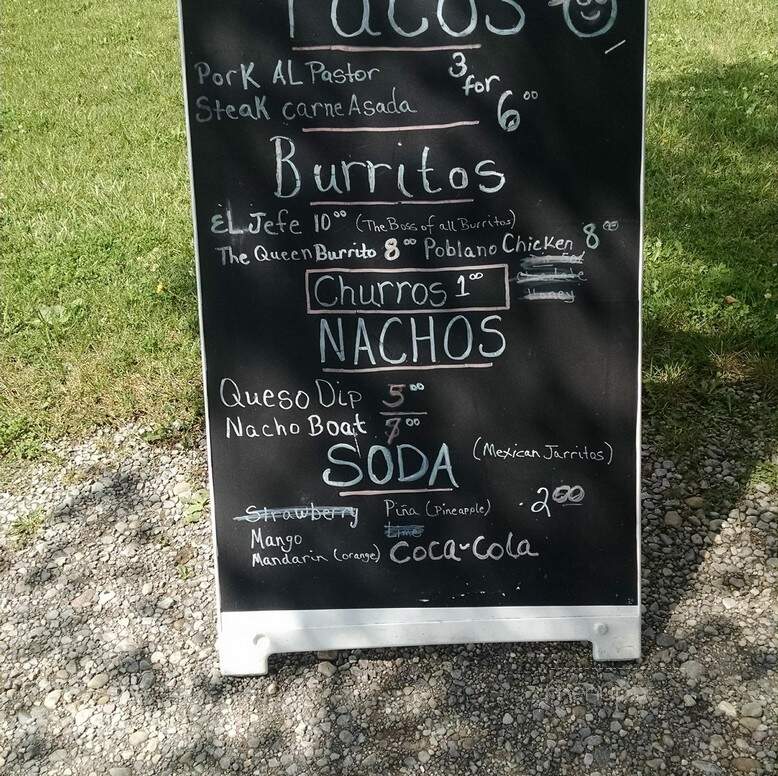 Tacos
Pork AL Pastor 3 for 6.00
Steak carne Asada
Burritos
EL Jefe 10.00 (The Boss of all Burritos)
The Queen Burrito 8.00 Poblano Chicken 8.00
Churros 1.00
Honey
NACHOS
Queso Dip 5.00
Nacho Boat 7.00
SODA (Mexican Jarritos)
Strawberry Piña (Pineapple) . 2.00
Mango Lime
Mandarin (orange) Coca-Cola